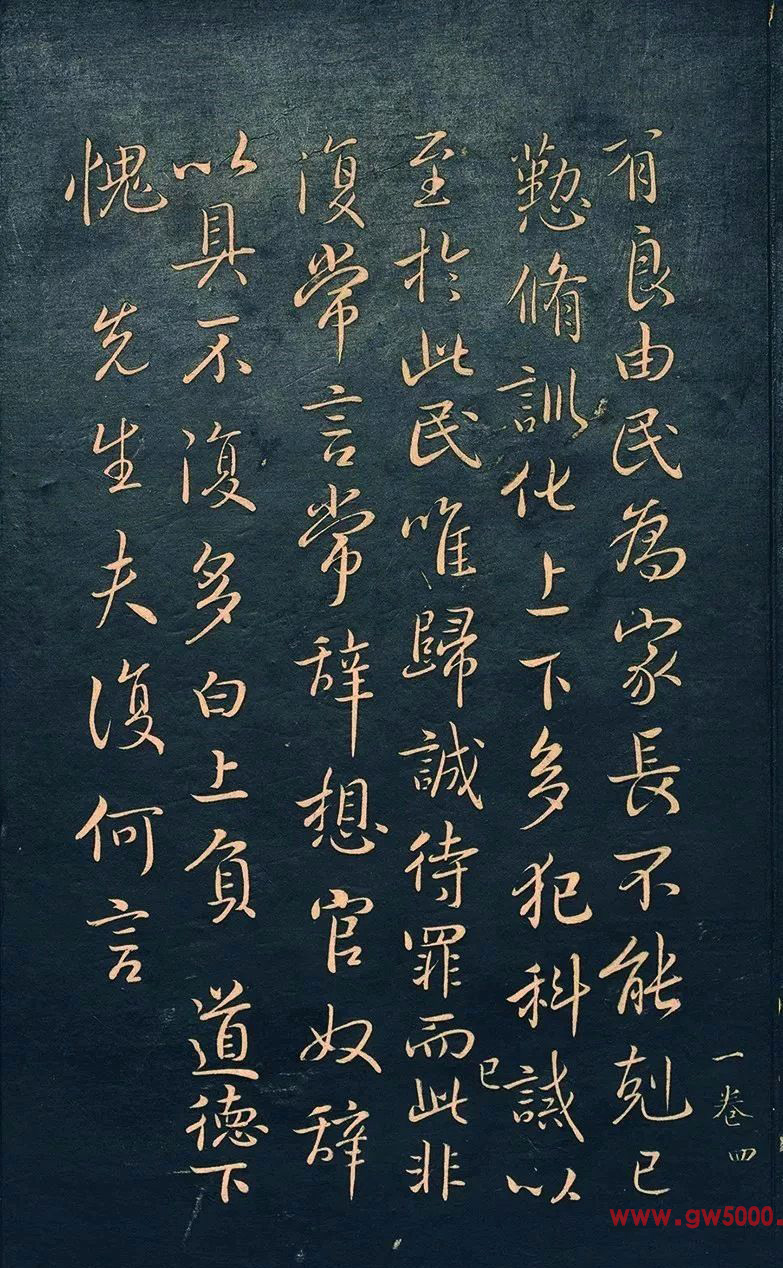 有良由民為家長不能剋已
懃脩訓化上下多犯科誡以
至於此民唯歸誠待罪而此非
復常言常辞想官奴辞
以具不復多白上負 道德下
愧 先生夫復何言
已
一卷四
www.gw5000.